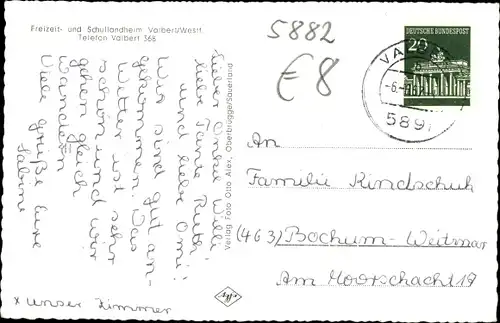 Freizeit- und Schullandheim Valbert/Westf.
Telefon Valbert 368
5882
€ 8
DEUTSCHE BUNDESPOST
20
589
Lieber Onkel Willi,
liebe Tante Ruth,
und liebe Omi!
Wir sind gut an-
gekommen. Das
Wetter ist sehr
schön und wir
gehen gleich
wandern
Viele grüße eure
Sabine
x unser Zimmer
Verlag Foto Otto Alex, Oberbrügge/Sauerland
An
Familie Kindschuh
(463) Bochum-Weitmar
Am Moorschacht 17